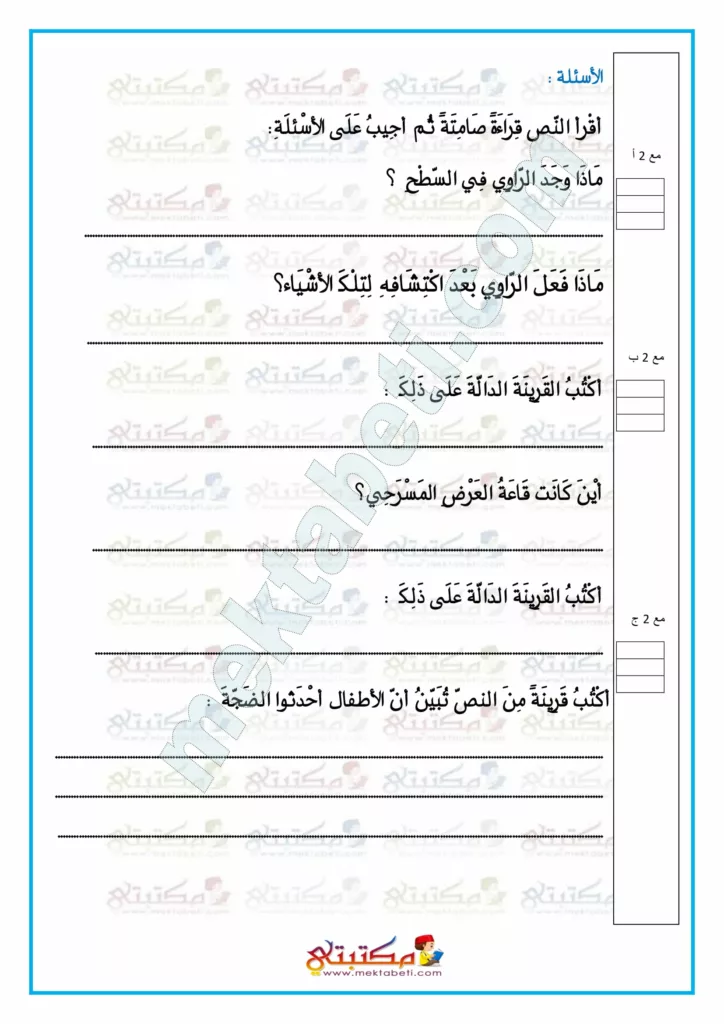 الأسئلة :
أقْرأ النّص قِرَاءَةً صَامِتَةً ثُم أجِيبُ عَلَى الأسْئلَةِ:
مع 2 أ
مَاذَا وَجَدَ الرّاوِي فِي السّطْحِ ؟
مَاذَا فَعَلَ الرّاوِي بَعْدَ اكْتِشَافِهِ لِتِلْكَ الأشْيَاء؟
مع 2 ب
أكْتُبُ القَرِينَةَ الدَالّةَ عَلَى ذَلِكَ :
أيْنَ كَانَت قَاعَةُ العَرْضِ المَسْرَحِي؟
أكْتُبُ القَرِينَةَ الدَالّةَ عَلَى ذَلِكَ :
مع 2 ج
أكْتُبُ قَرِينَةً مِنَ النصّ تُبَيّنُ أنّ الأطفال أحْدَثوا الضَجّةَ :
mektabeti.com
مكتبتي
www.mektabeti.com